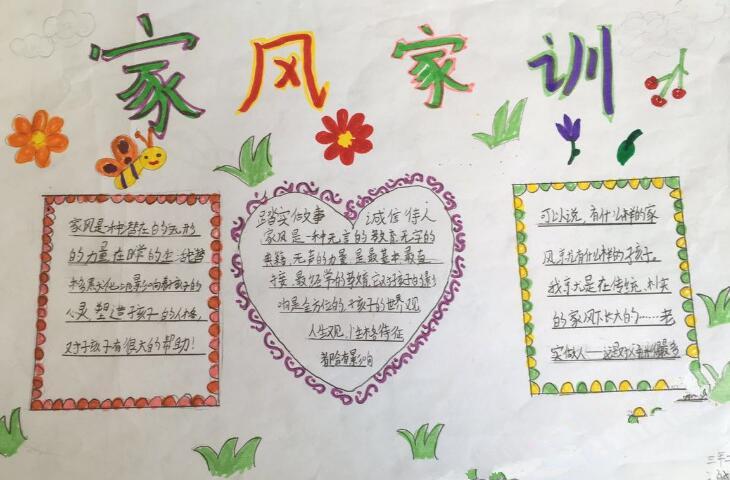 家风家训
家风是一种潜在的无形
的力量在日常的生活中潜
移默化地影响着孩子的
心灵塑造孩子的人格,
对于孩子有很大的帮助!
踏实做事 诚信待人
家风是一种无言的教育无字的
典籍,无声的力量是最基本最直
接、最经常的教育它对孩子的影
响是全方位的,孩子的世界观
人生观、性格特征
都会有影响
可以说,有什么样的家
风就有什么样的孩子。
我就是在传统、朴实
的家风下长大的……老
实做人——这是
三年二